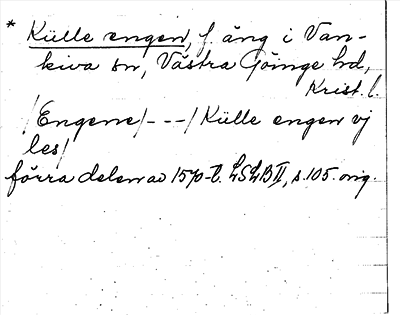 * Külle engen, f äng i Van-
kiva sn, Västra Göinge hd,
Krist. l.
/Engene/---/Külle engen vj
les/
förra delen av 1570-t. LSLB II, s. 105. orig.